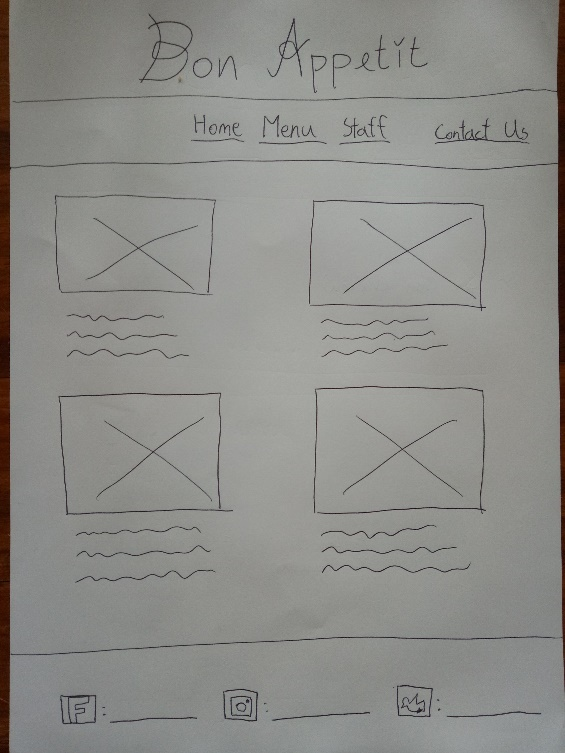 Bon Appetit
Home Menu Staff Contact Us
F : : :